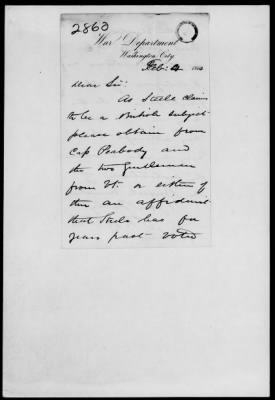 2863
War Department
Washington City
Feb: 4 186
Dear Sir:
As Steele claims
to be a British subject
please obtain from
Cap Peabody and
the two Gentlemen
from Vt. or either of
them an affidavit
that Steele has for
years past voted